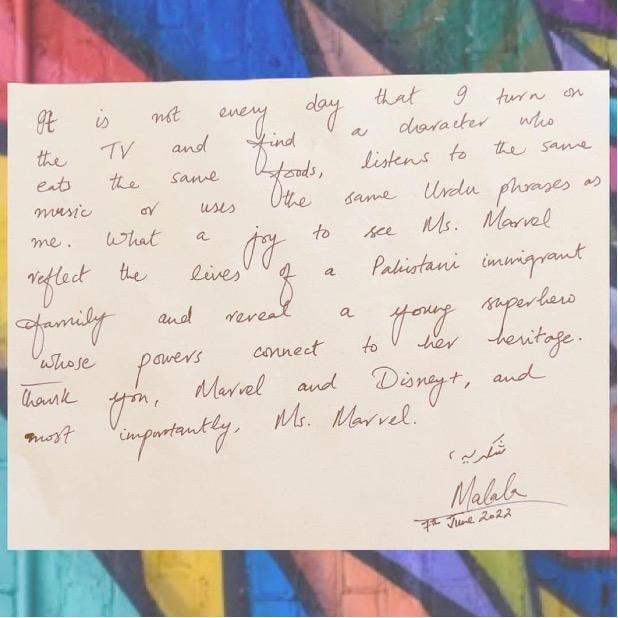 It is not every day that I turn on
the TV and find a character who
eats the same foods, listens to the same
music or uses the same Urdu phrases as
me. What a joy to see Ms. Marvel
reflect the lives of a Pakistani immigrant
family and reveal a young superhero
whose powers connect to her heritage.
Thank you, Marvel and Disney+, and
most importantly, Ms. Marvel.
شکریہ،
Malala
7th June 2022